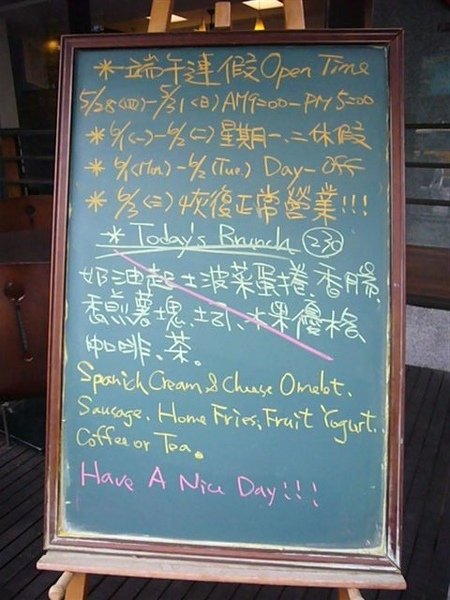 *端午連假Open Time
5/28(四)-5/31(日)AM9=00-PM5=00
*6/1(一)-6/2(二)星期一、二休假
*6/1(Mon.)-6/2(Tue.) Day-OFF
*6/3(三)恢復正常營業!!!
*Today's Brunch 230
奶油起士菠菜蛋捲、香腸、
香煎薯塊、土司、水果優格、
咖啡、茶。
Spanich Cream & Cheese Omelet.
Sausage. Home Fries, Fruit Yogurt.
Coffee or Tea。
Have A Nice Day!!!